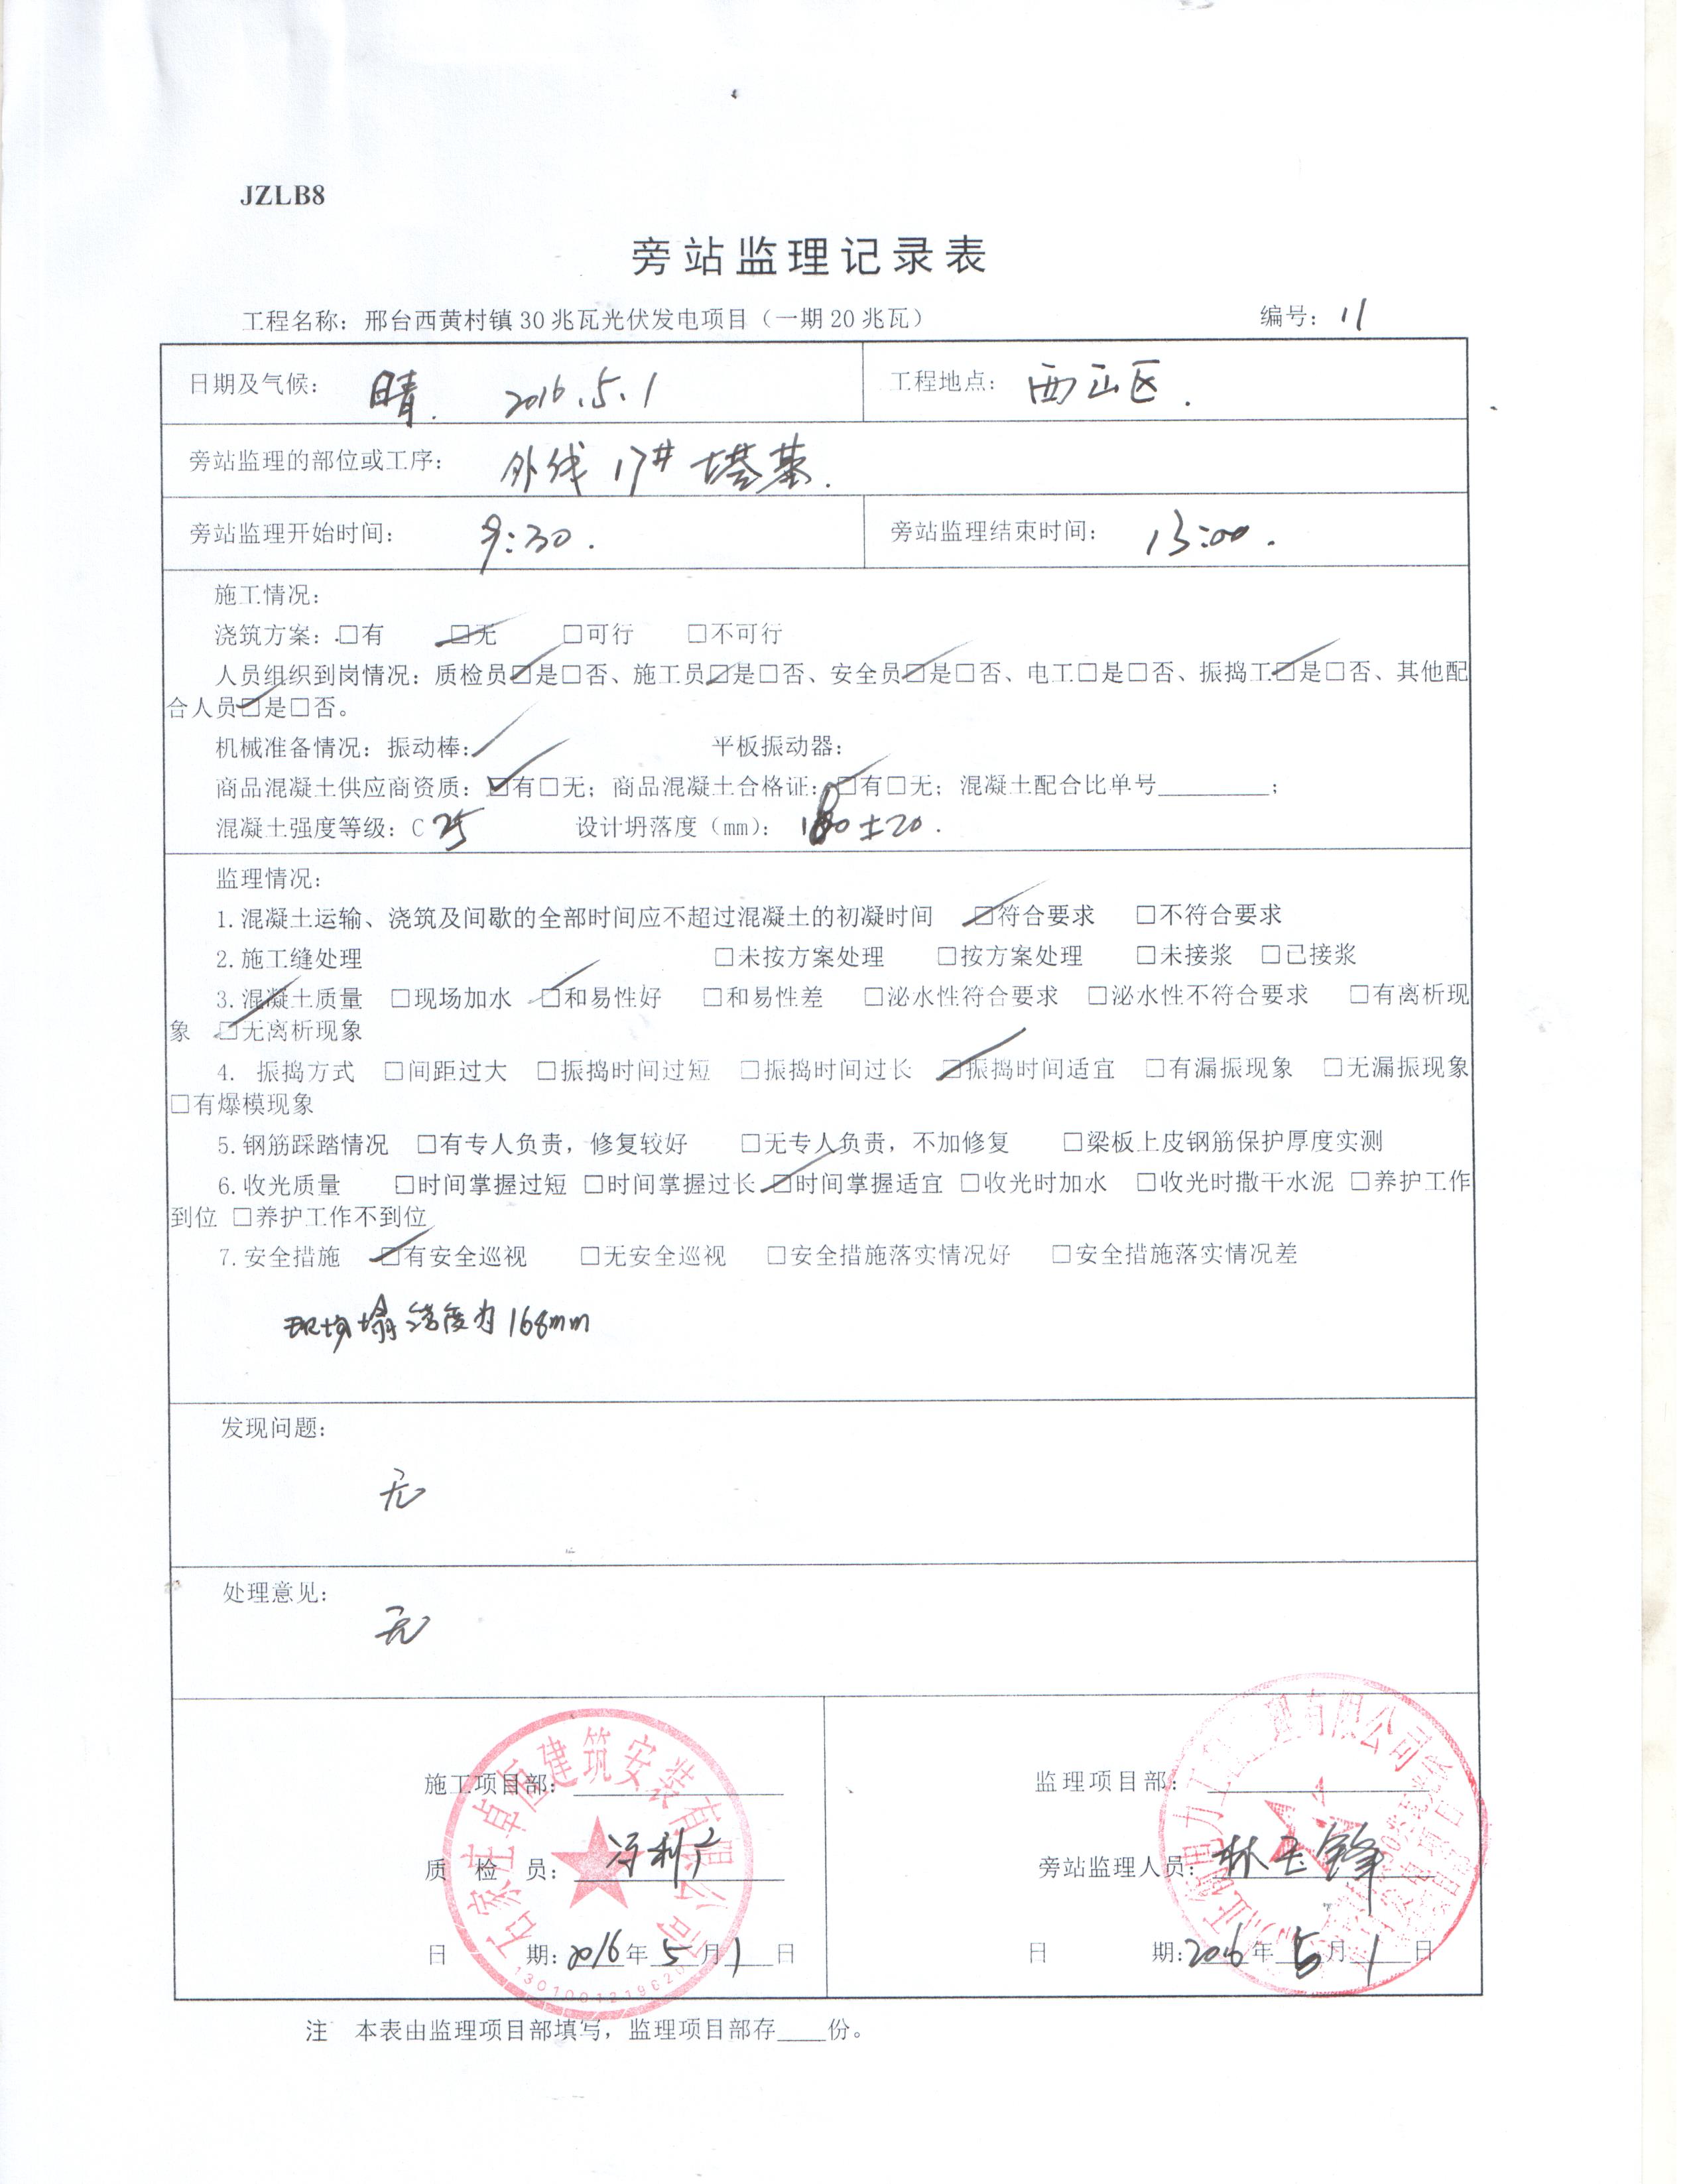 JZLB8
旁站监理记录表
工程名称：邢台西黄村镇30兆瓦光伏发电项目（一期20兆瓦） 编号：11
日期及气候： 晴. 2016.5.1 工程地点： 西山区.
旁站监理的部位或工序： 外线 17# 塔基.
旁站监理开始时间： 9:30. 旁站监理结束时间： 13:00.
施工情况：
浇筑方案：□有 ☑无 □可行 □不可行
人员组织到岗情况：质检员☑是□否、施工员☑是□否、安全员☑是□否、电工□是□否、振捣工☑是□否、其他配
合人员☑是□否。
机械准备情况：振动棒：✓ 平板振动器：
商品混凝土供应商资质：☑有□无；商品混凝土合格证：☑有□无；混凝土配合比单号________；
混凝土强度等级：C 25 设计坍落度（mm）：180±20.
监理情况：
1.混凝土运输、浇筑及间歇的全部时间应不超过混凝土的初凝时间 ☑符合要求 □不符合要求
2.施工缝处理 □未按方案处理 □按方案处理 □未接浆 □已接浆
3.混凝土质量 □现场加水 ☑和易性好 □和易性差 □泌水性符合要求 □泌水性不符合要求 □有离析现
象 ☑无离析现象
4. 振捣方式 □间距过大 □振捣时间过短 □振捣时间过长 ☑振捣时间适宜 □有漏振现象 □无漏振现象
□有爆模现象
5.钢筋踩踏情况 □有专人负责，修复较好 □无专人负责，不加修复 □梁板上皮钢筋保护厚度实测
6.收光质量 □时间掌握过短 □时间掌握过长 ☑时间掌握适宜 □收光时加水 □收光时撒干水泥 □养护工作
到位 □养护工作不到位
7.安全措施 ☑有安全巡视 □无安全巡视 □安全措施落实情况好 □安全措施落实情况差
现场塌落度为168mm
发现问题：
无
处理意见：
无
施工项目部：________ 监理项目部：________
石家庄卓固建筑安装有限公司
1301001219620
质 检 员： 利广 旁站监理人员：林玉锋
日 期：2016年5月1日 日 期：2016年5月1日
注 本表由监理项目部填写，监理项目部存____份。